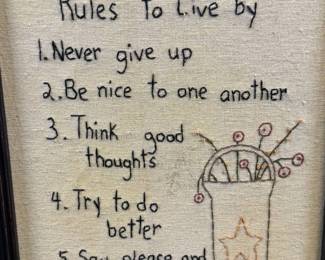 Rules To Live by
1. Never give up
2. Be nice to one another
3. Think good
thoughts
4. Try to do
better
5. Say please and